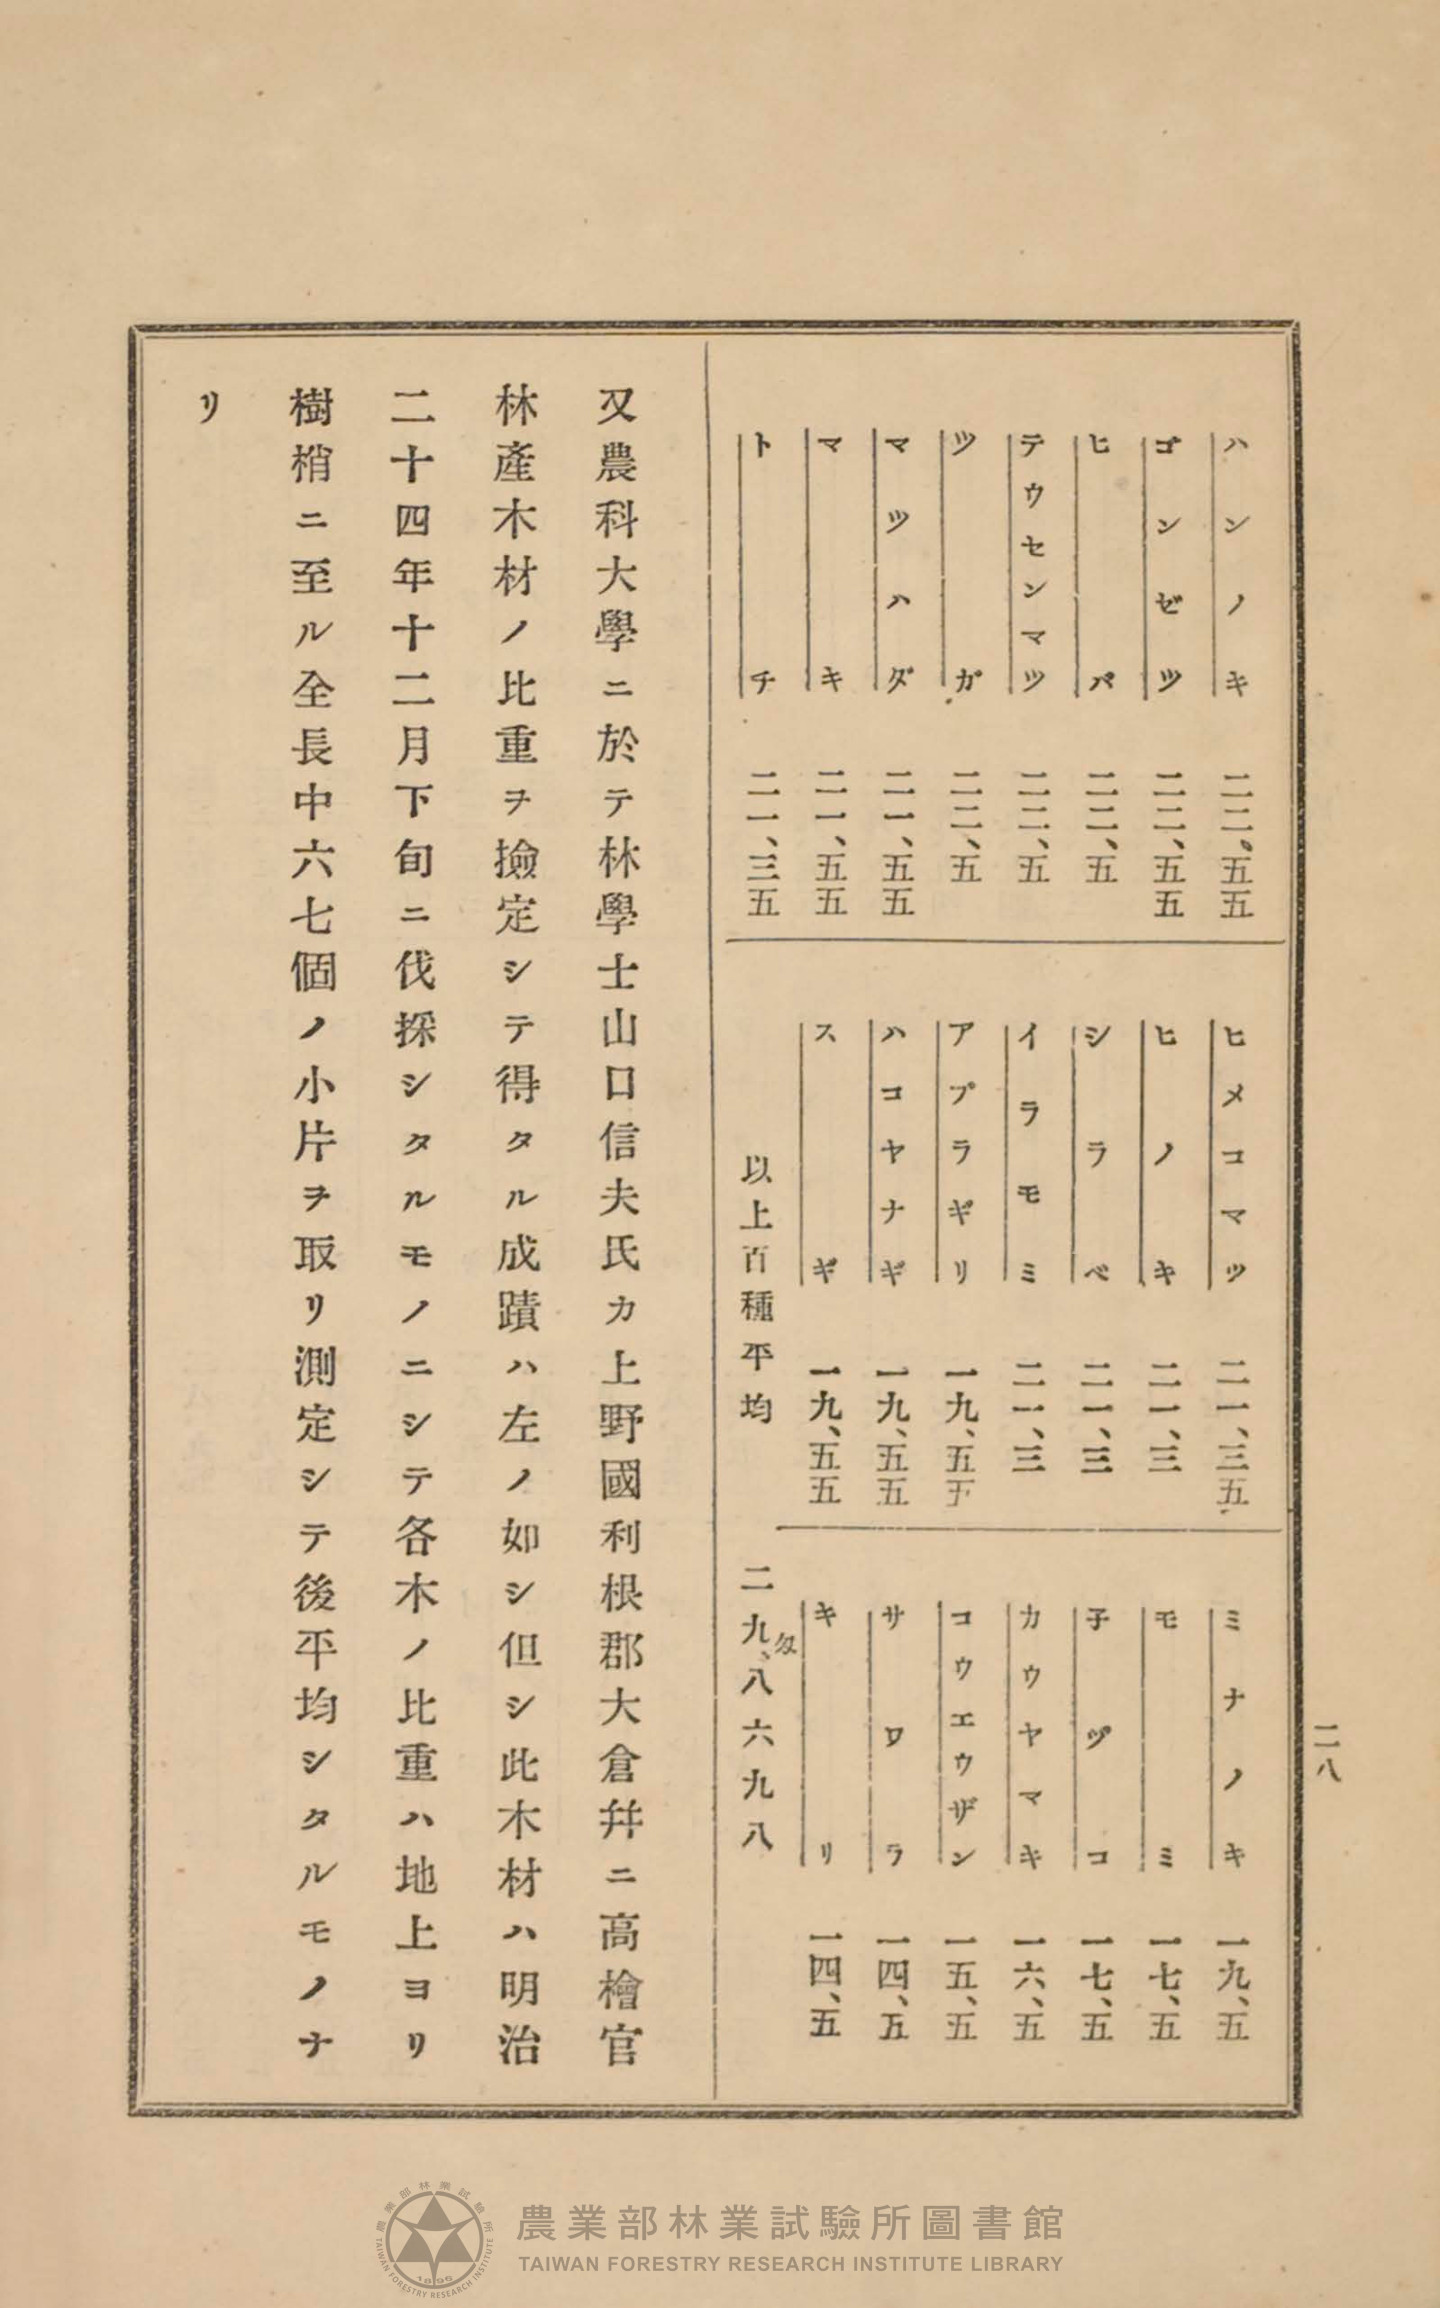 二八
ハンノキ 二二、五五
ゴンゼツ 二二、五五
ヒバ 二二、五
テウセンマツ 二二、五
ツガ 二二、五
マツハダ 二一、五五
マキ 二一、五五
トチ 二一、三五
ヒメコマツ 二一、三五
ヒノキ 二一、三
シラベ 二一、三
イラモミ 二一、三
アブラギリ 一九、五五
ハコヤナギ 一九、五五
スギ 一九、五五
ミナノキ 一九、五
モミ 一七、五
子ヅコ 一七、五
カウヤマキ 一六、五
コウエウザン 一五、五
サワラ 一四、五
キリ 一四、五
以上百種平均 二九、匁八六九八
又農科大學ニ於テ林學士山口信夫氏カ上野國利根郡大倉幷ニ高檜官
林產木材ノ比重ヲ撿定シテ得タル成蹟ハ左ノ如シ但シ此木材ハ明治
二十四年十二月下旬ニ伐採シタルモノニシテ各木ノ比重ハ地上ヨリ
樹梢ニ至ル全長中六七個ノ小片ヲ取リ測定シテ後平均シタルモノナ
リ
農業部林業試驗所圖書館
TAIWAN FORESTRY RESEARCH INSTITUTE LIBRARY
農業部林業試驗所
TAIWAN FORESTRY RESEARCH INSTITUTE
1896